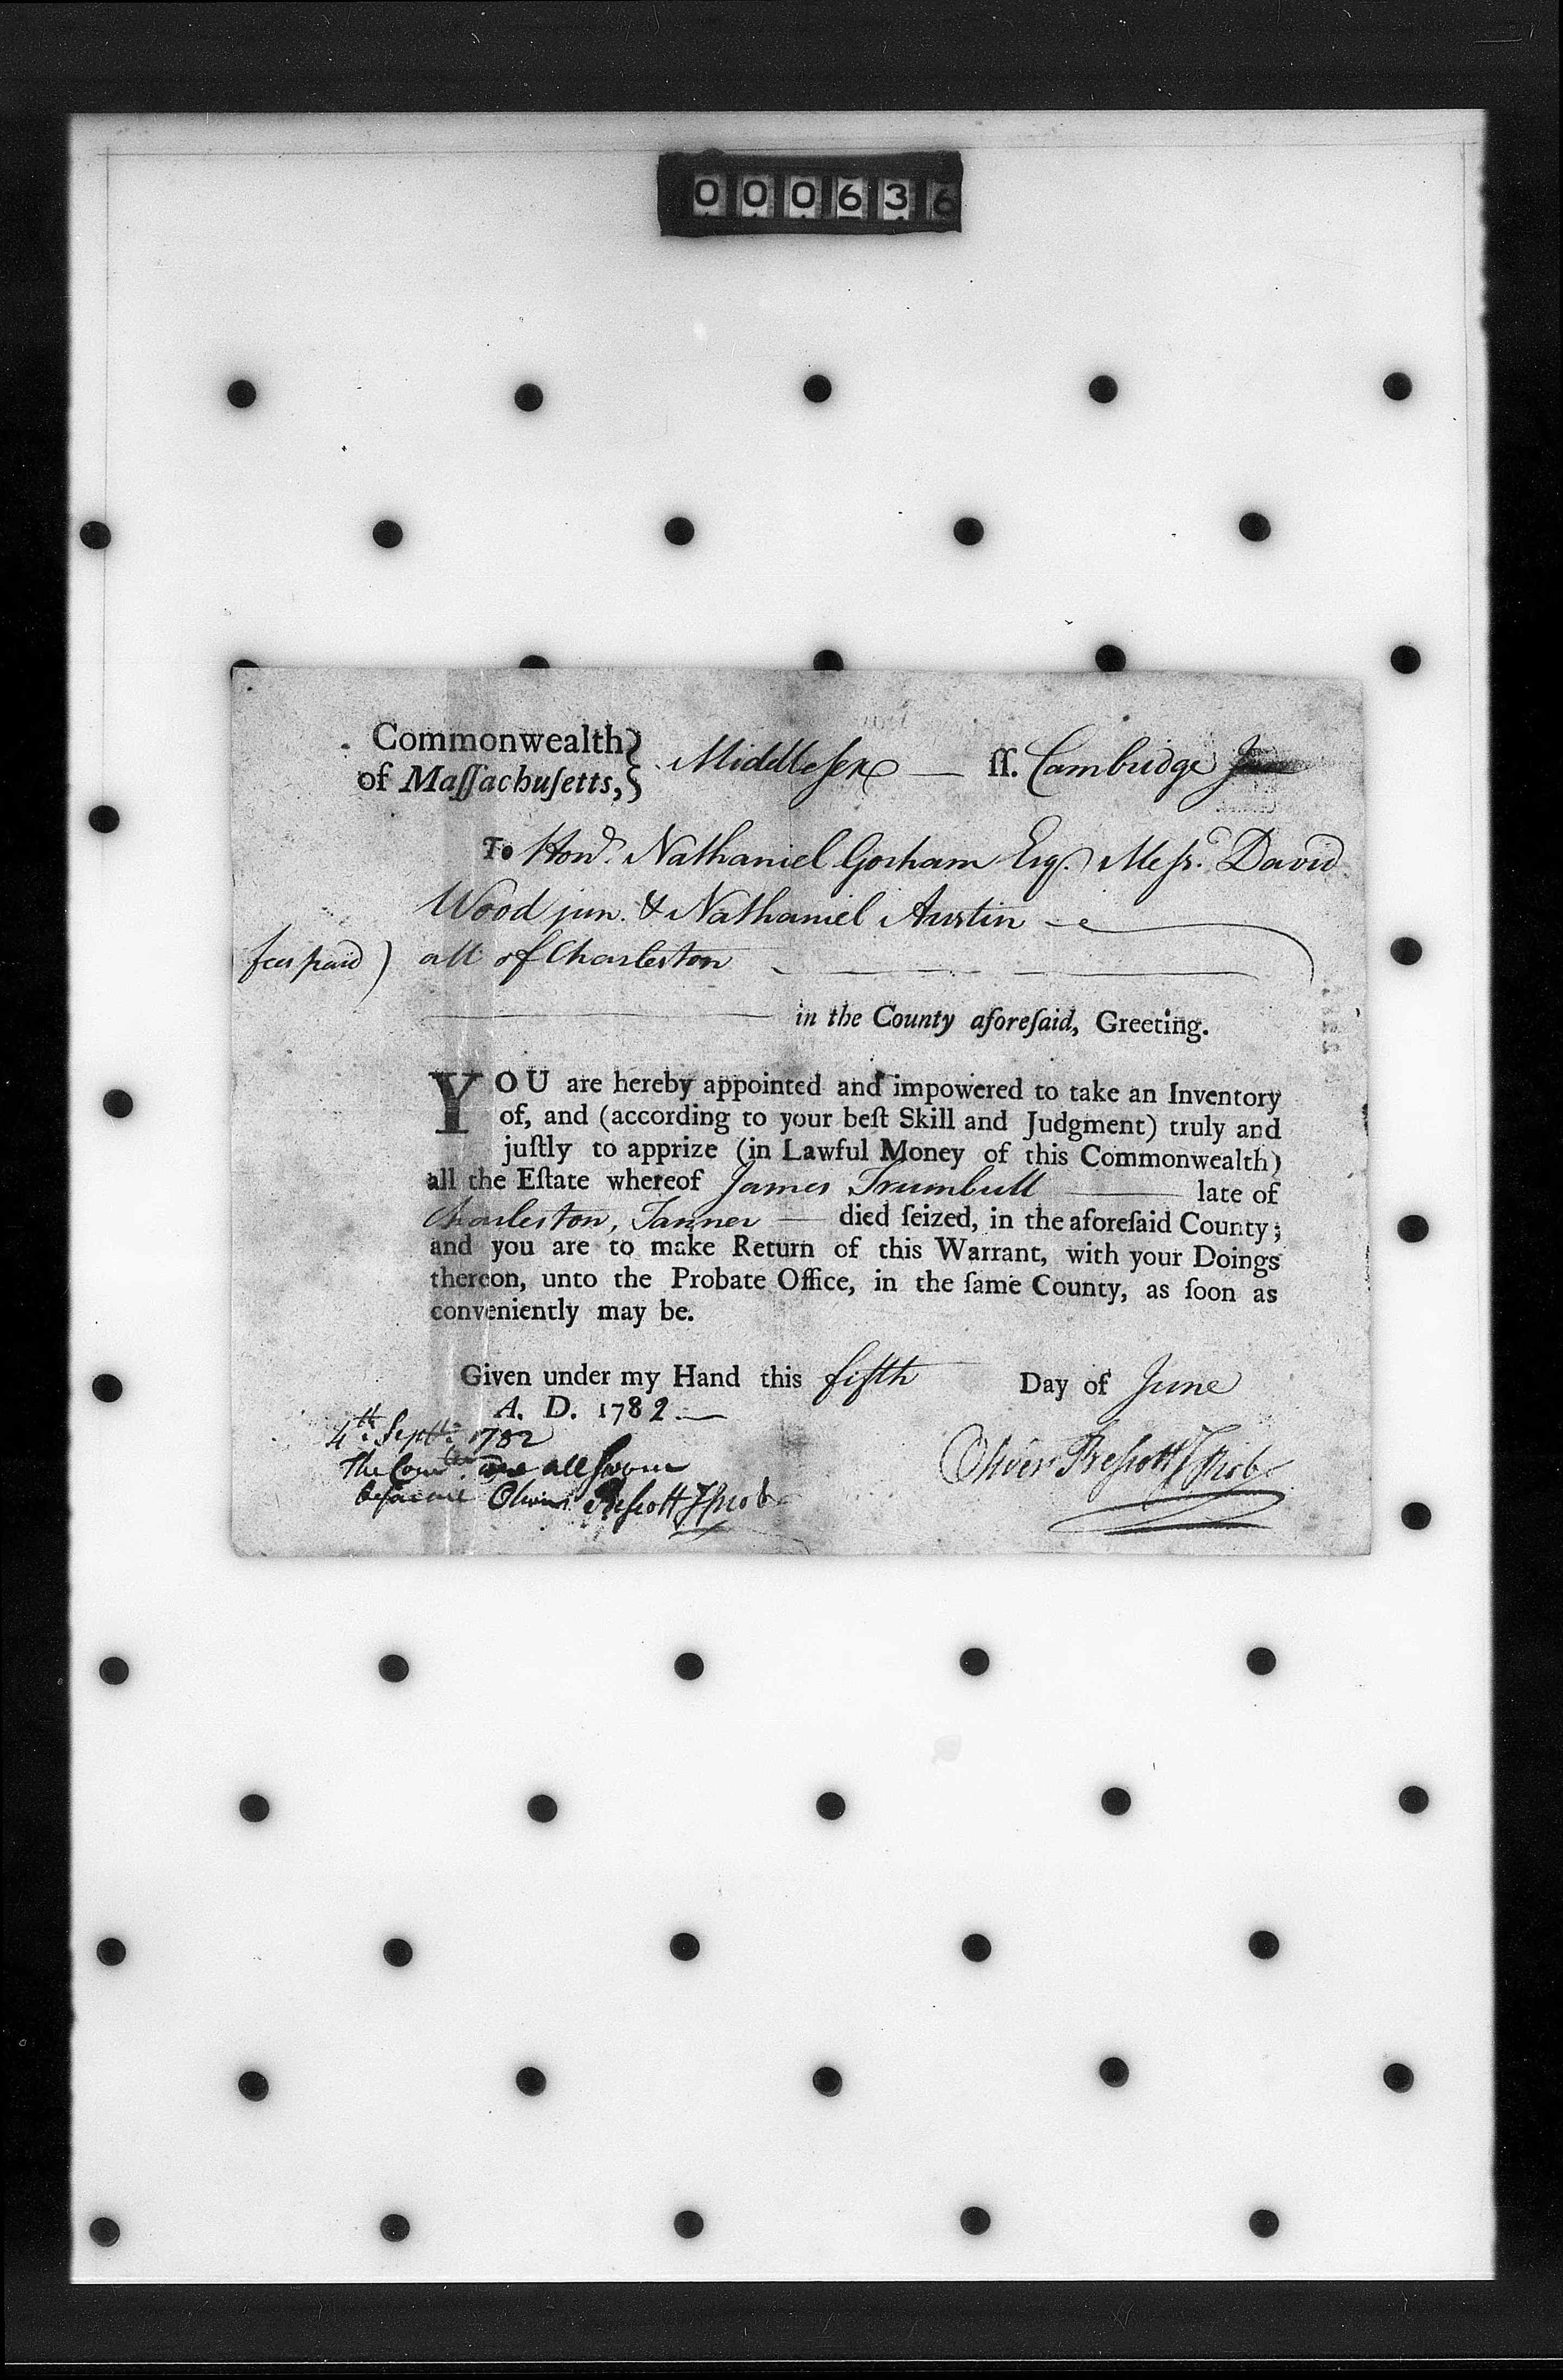 000636
Commonwealth
of Maſſachuſetts,} Middlesex — ſſ. Cambridge
To Honᵈ. Nathaniel Gorham Esq. Messrs. David
Wood jun. & Nathaniel Austin
fees paid) all of Charleston
in the County aforeſaid, Greeting.
YOU are hereby appointed and impowered to take an Inventory
of, and (according to your beſt Skill and Judgment) truly and
juſtly to apprize (in Lawful Money of this Commonwealth)
all the Eſtate whereof James Trumbull — late of
Charleston, Tanner — died ſeized, in the aforeſaid County;
and you are to make Return of this Warrant, with your Doings
thereon, unto the Probate Office, in the ſame County, as ſoon as
conveniently may be.
Given under my Hand this fifth Day of June
A. D. 1782.—
4th. Septr. 1782
The Comtee. are all Sworn
before me Oliver Prescott JProb
Oliver Prescott JProb